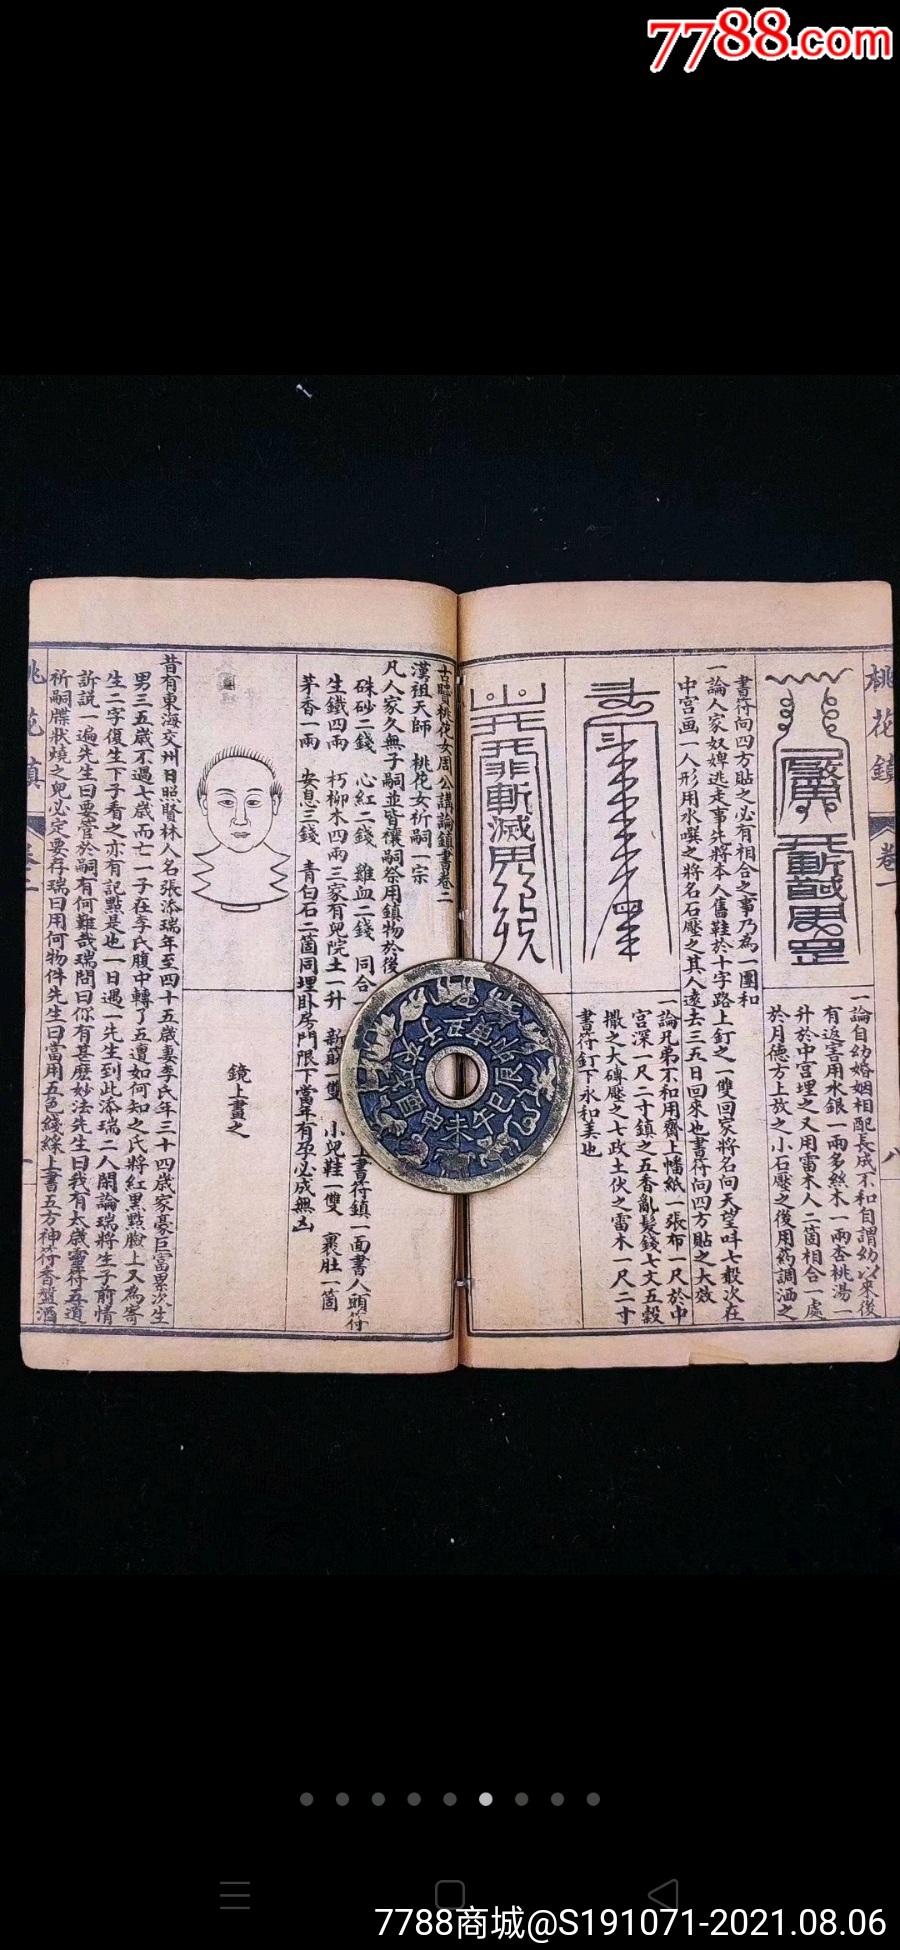 7788.com
桃花鎮
卷一
八
一論自幼婚姻相配長成不和自謂幼以來後
有返言用水銀一兩多絲木一兩杏桃湯一
升於中宮埋之又用雷木人二箇相合一處
於月德方上放之小石壓之後用葯調洒之
書符向四方貼之必有相合之事乃為一團和
一論人家奴婢逃走事先將本人舊鞋於十字路上釘之一雙回家將名向天望呌七殺次在
中宮画一人形用水噀之將名石壓之其人遠去三五日回來也書符向四方貼之大效
一論兄弟不和用齋上幡紙一張布一尺於中
宮深一尺二寸鎮之五香亂髪錢七文五穀
撒之大磚壓之七政土伏之雷木一尺二寸
書符釘下永和美也
斬滅
古賢桃花女周公講論鎮書卷二
漢祖天師 桃花女祈嗣一宗
凡人家久無子嗣並皆禳嗣祭用鎮物於後
上書符鎮一面書人頭符
硃砂二錢 心紅二錢 雞血二錢 同合一
生鐵四兩 朽柳木四兩三家有兒院土一升 新 一雙 小兒鞋一雙 裹肚一箇
茅香一兩 安息三錢 青白石二箇同埋卧房門限下當年有孕必成無凶
鏡上畫之
昔有東海交州日照賢林人名張添瑞年至四十五歲妻李氏年三十四歲家豪巨富累次生
男三五歲不過七歲而亡一子在李氏腹中轉了五遭如何知之氏將紅黑點臉上又為寄
生二字復生下子看之亦有記點是也一日遇一先生到此添瑞二人閑論瑞將生子前情
訴説一遍先生曰要管於嗣有何難哉瑞問曰你有甚麼妙法先生曰我有太歲靈符五道
祈嗣牒狀燒之兒必定要存瑞曰用何物件先生曰當用五色綫綵上書五方神符香盤酒
桃花鎮
卷二
一
子丑寅卯辰巳午未申酉戌亥
7788商城@S191071-2021.08.06